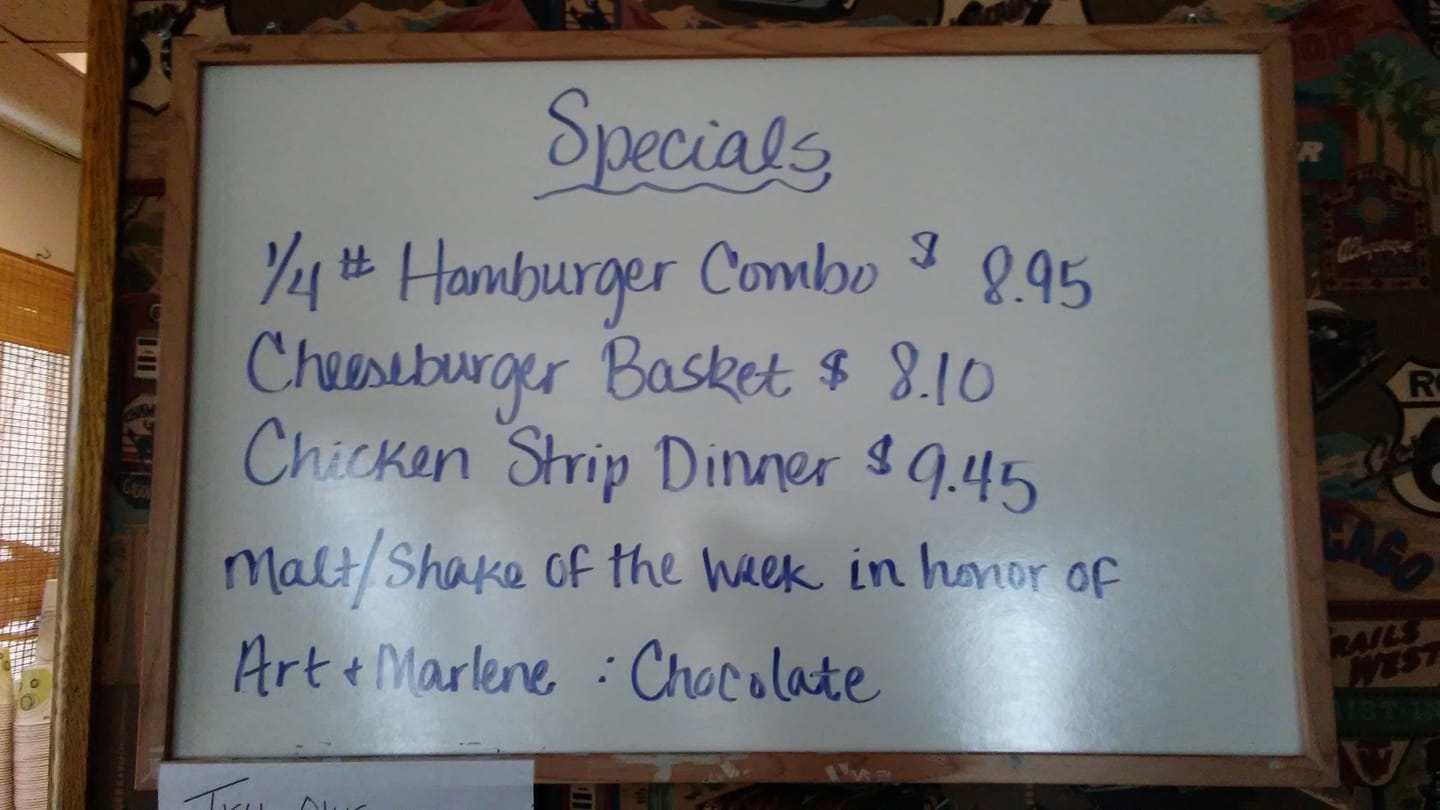 Specials
1/4 # Hamburger Combo $ 8.95
Cheeseburger Basket $ 8.10
Chicken Strip Dinner $ 9.45
Malt/Shake of the week in honor of
Art + Marlene : Chocolate
Try our
Albuquerque
RO
CAGO
RAILS
WEST